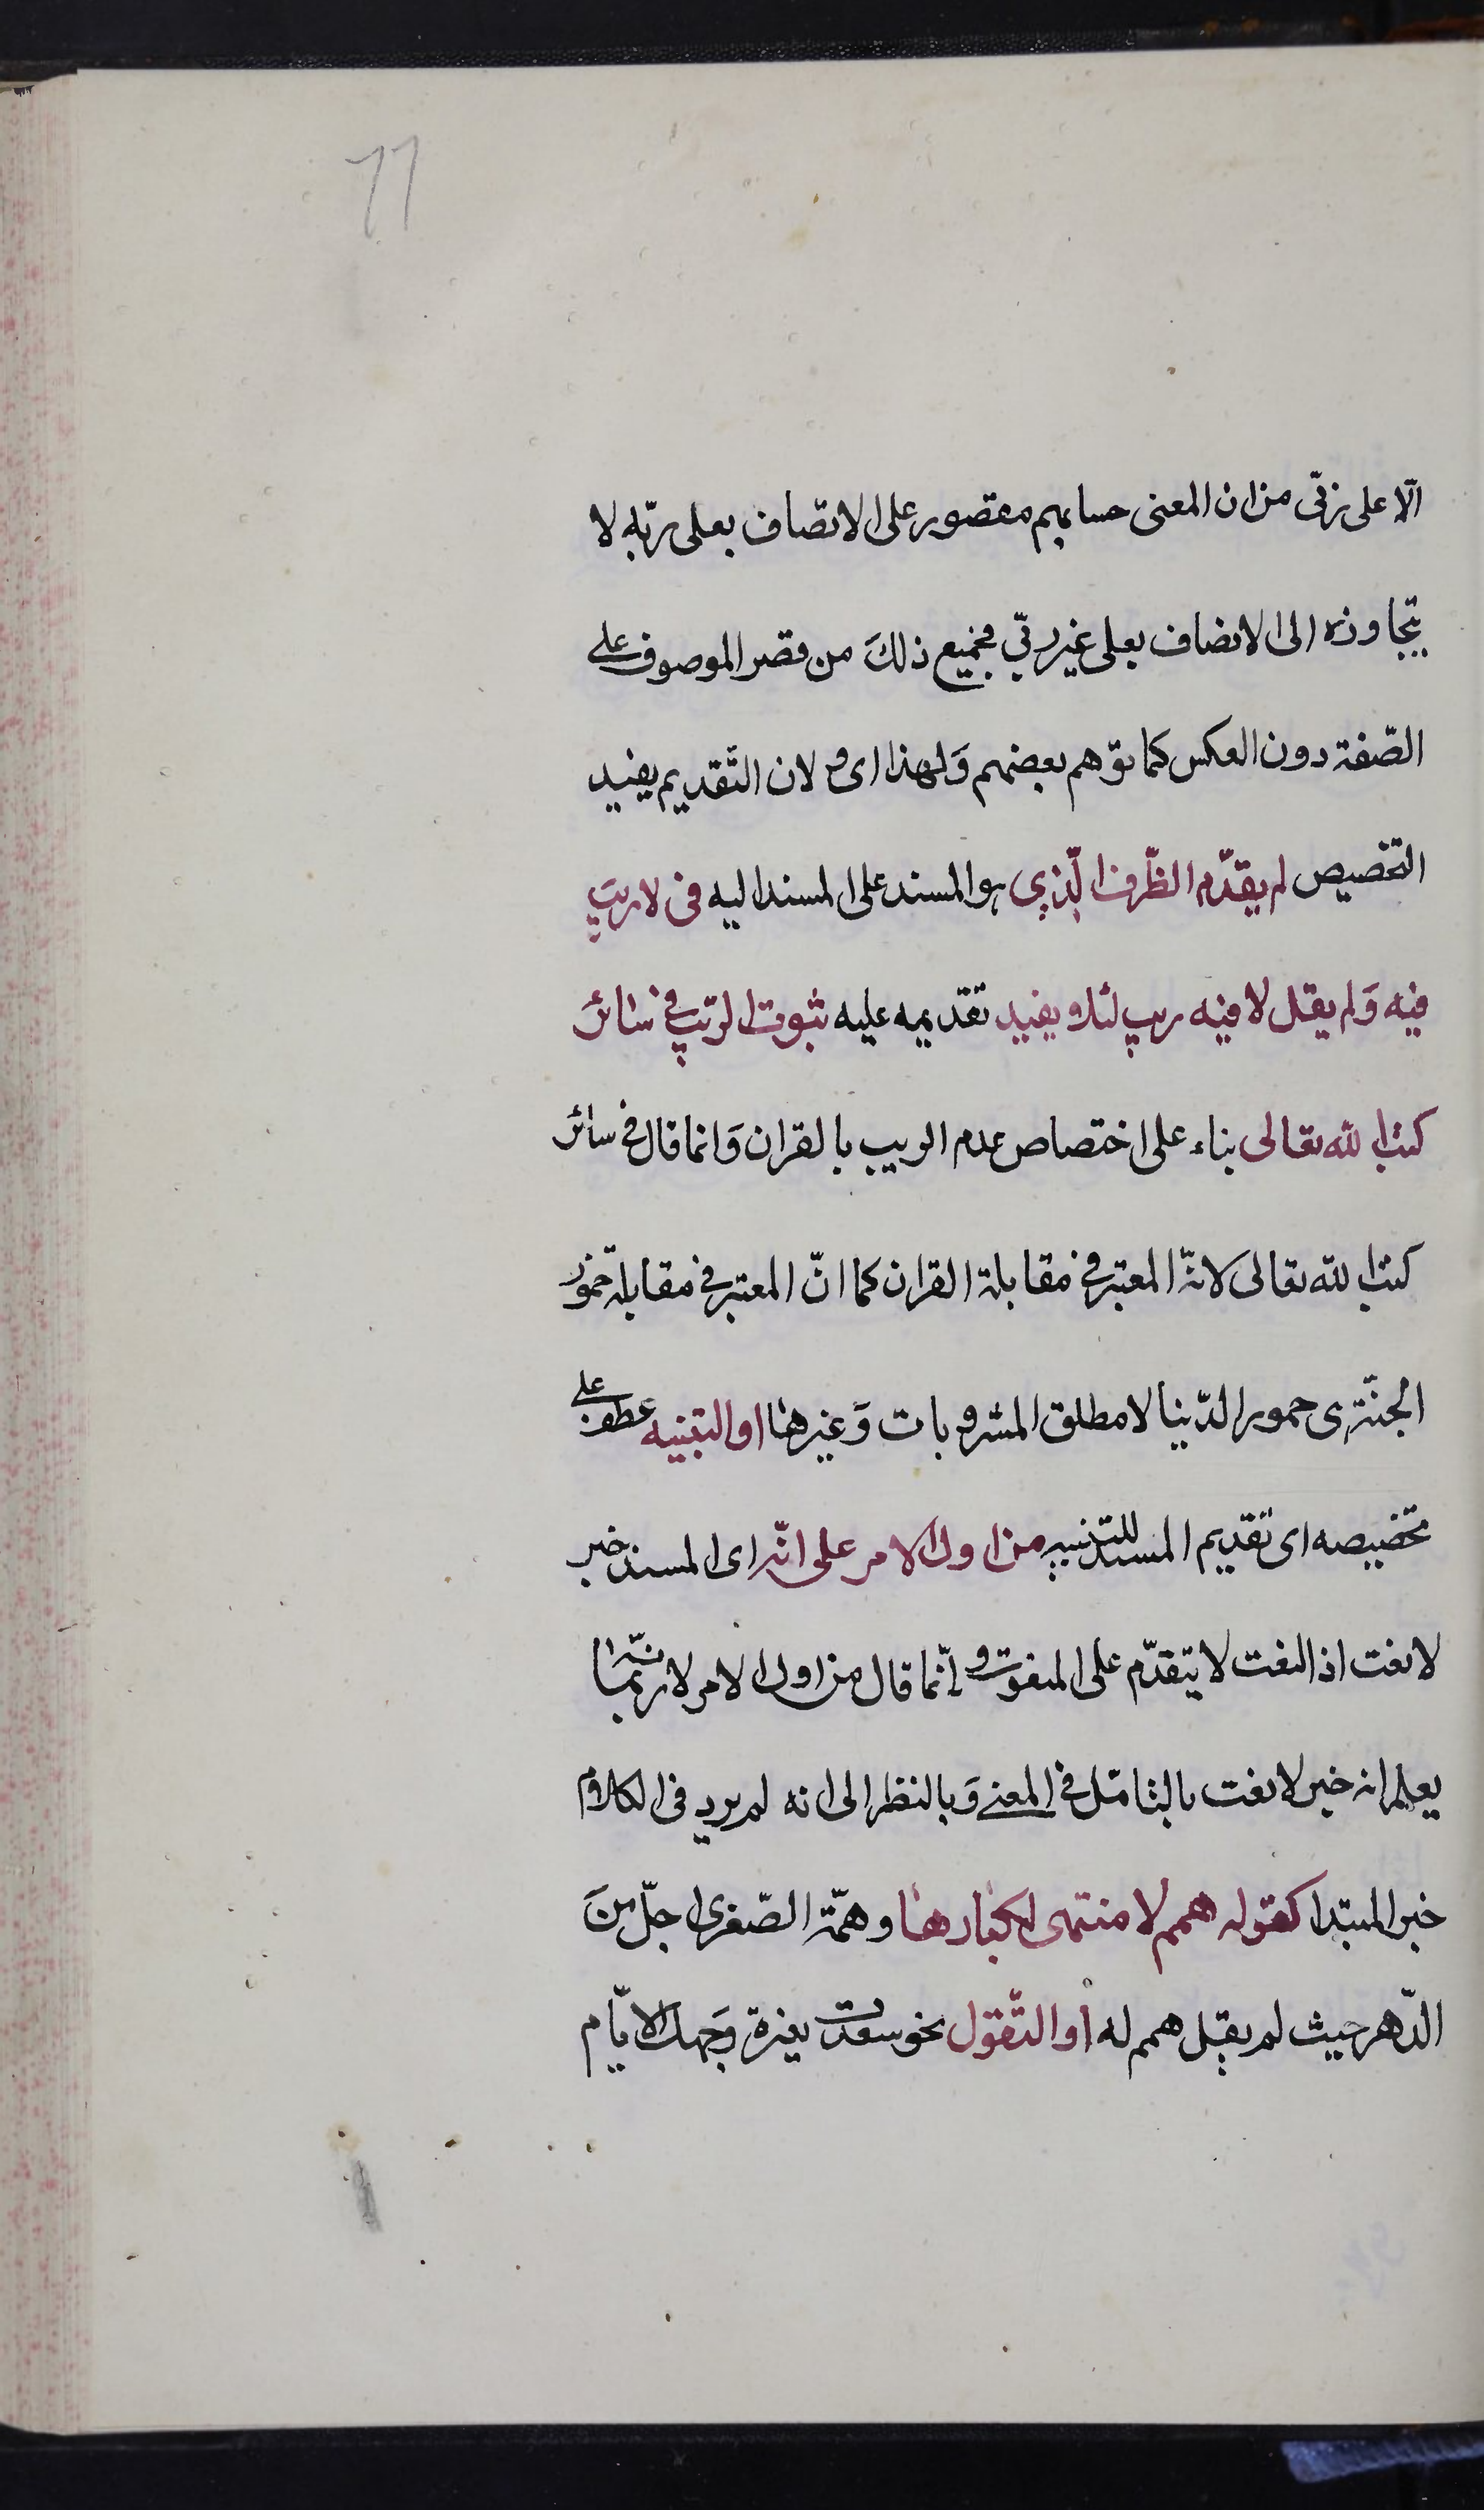 ٦٦
الّا على ربّى من ان المعنى حسابهم مقصور على الاتصاف بعلى ربّه لا
يتجاوزه الى الاتصاف بعلى غير ربّي فجميع ذلكَ من قصر الموصوف على
الصّفة دون العكس كما توّهم بعضهم وَلهذا اى و لان التّقديم يفيد
التخصيص لم يقدّم الظّرف الّذي هو المسند على المسند اليه فى لا ريبَ
فيه وَلم يقل لا فيه ريب لئلا يفيد تقديمه عليه ثبوت الريب في سائر
كتب الله تعالى بناء على اختصاص عدم الريب بالقران وَانما قال في سائر
كتب الله تعالى لانّه المعتبر في مقابلة القران كما انّ المعتبر في مقابلة خمور
الجنّة هى خمور الدّنيا لا مطلق المشروبات وَغيرها او التنبيه عطف على
تخصيصه اى تقديم المسند للتنبيه من اول الامر على انّه اى المسند خبر
لا نعت اذ النعت لا يتقدّم على المنعوت و انّما قال من اول الامر لانه ربّما
يعلم انه خبر لا نعت بالتامّل في المعنى وَبالنظر الى انه لم يرد فى الكلام
خبر المبتدا كقوله همم لا منتهى لكبارها و همّته الصّغرى اجلّ منَ
الدّهر حيث لم يقل همم له او التّفؤل نحو سعدت بغرة وَجهك الايّام